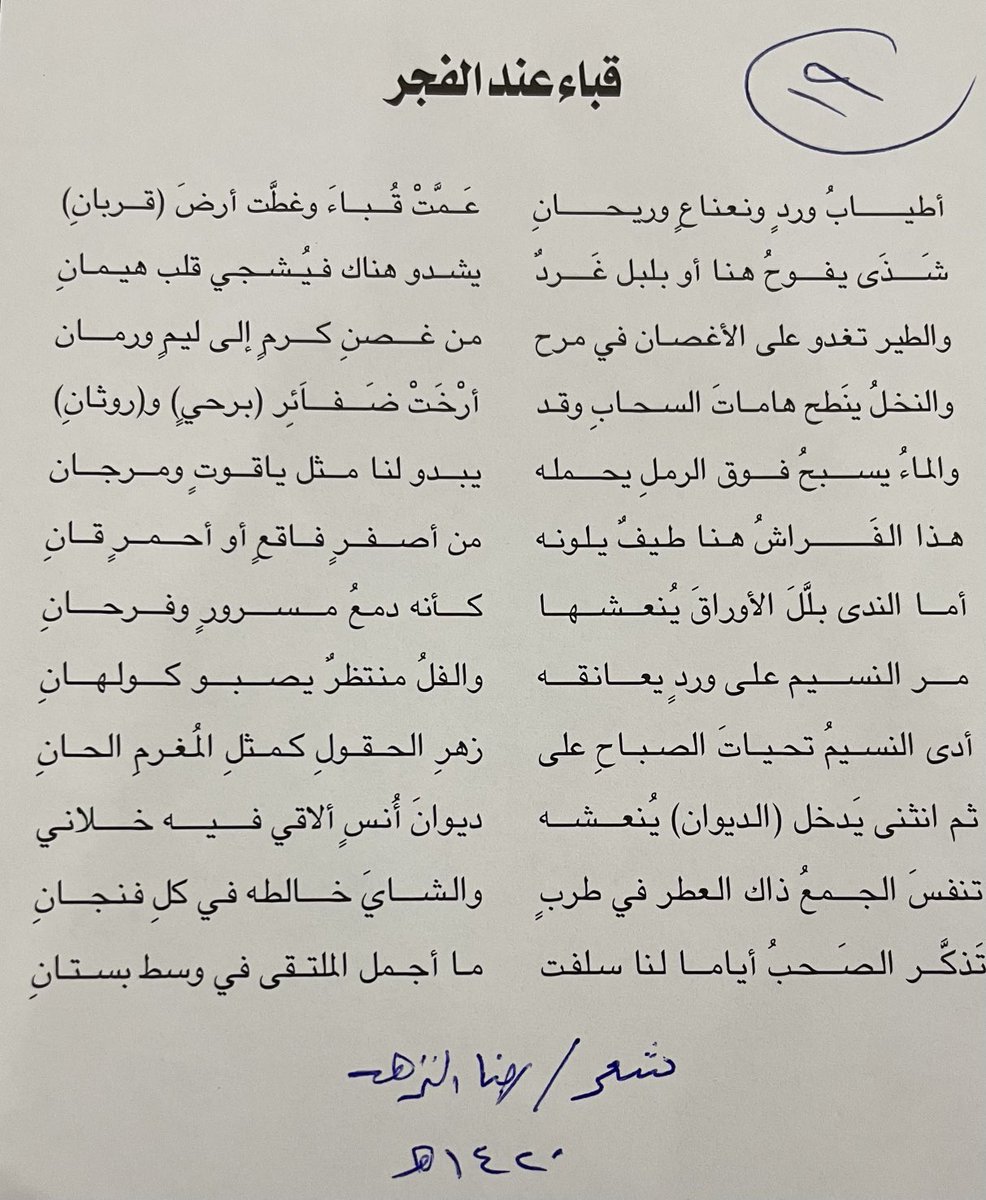 ١٩
قباء عند الفجر
أطيـــابُ وردٍ ونعناعٍ وريحـــانِ عَـمَّتْ قُـبـاءَ وغطَّت أرضَ (قـربانِ)
شَـذَى يفـوحُ هنا أو بلبل غَـردٌ يشدو هناك فيُشجي قلب هيمـانِ
والطير تغدو على الأغصـان في مرح من غـصنِ كـرمٍ إلى ليمٍ ورمـان
والنخلُ ينَطح هامـاتَ السحـابِ وقد أرْخَتْ ضَـفـاَئرِ (برحيٍ) و(روثانِ)
والماءُ يسـبحُ فـوق الرملِ يحـمله يبـدو لنا مـثل ياقـوتٍ ومـرجـان
هـذا الفَـــراشُ هنـا طيـفٌ يلونـه من أصفـرٍ فـاقعٍ أو أحـمـرٍ قـانِ
أمـا الندى بلَّلَ الأوراقَ يُنعـشـهـا كـأنه دمـعُ مـسـرورٍ وفـرحـانِ
مـر النسـيم على وردٍ يعـانقـه والفلُ منتظرٌ يصـبـو كـولهـانِ
أدى النسيمُ تحيـاتَ الصبـاحِ على زهرِ الحـقولِ كمـثلِ المُغرمِ الحـانِ
ثم انثنى يَدخل (الديوان) يُنعـشـه ديوانَ أُنسٍ ألاقي فـيـه خـلاني
تنفسَ الجـمعُ ذاك العطر في طربٍ والشـايَ خـالطه في كلِ فنجـانِ
تَذكَّـر الصَـحبُ أيامـا لنا سلفت مـا أجمل الملتـقى في وسط بستـانِ
شعر /
١٤٢٠هـ